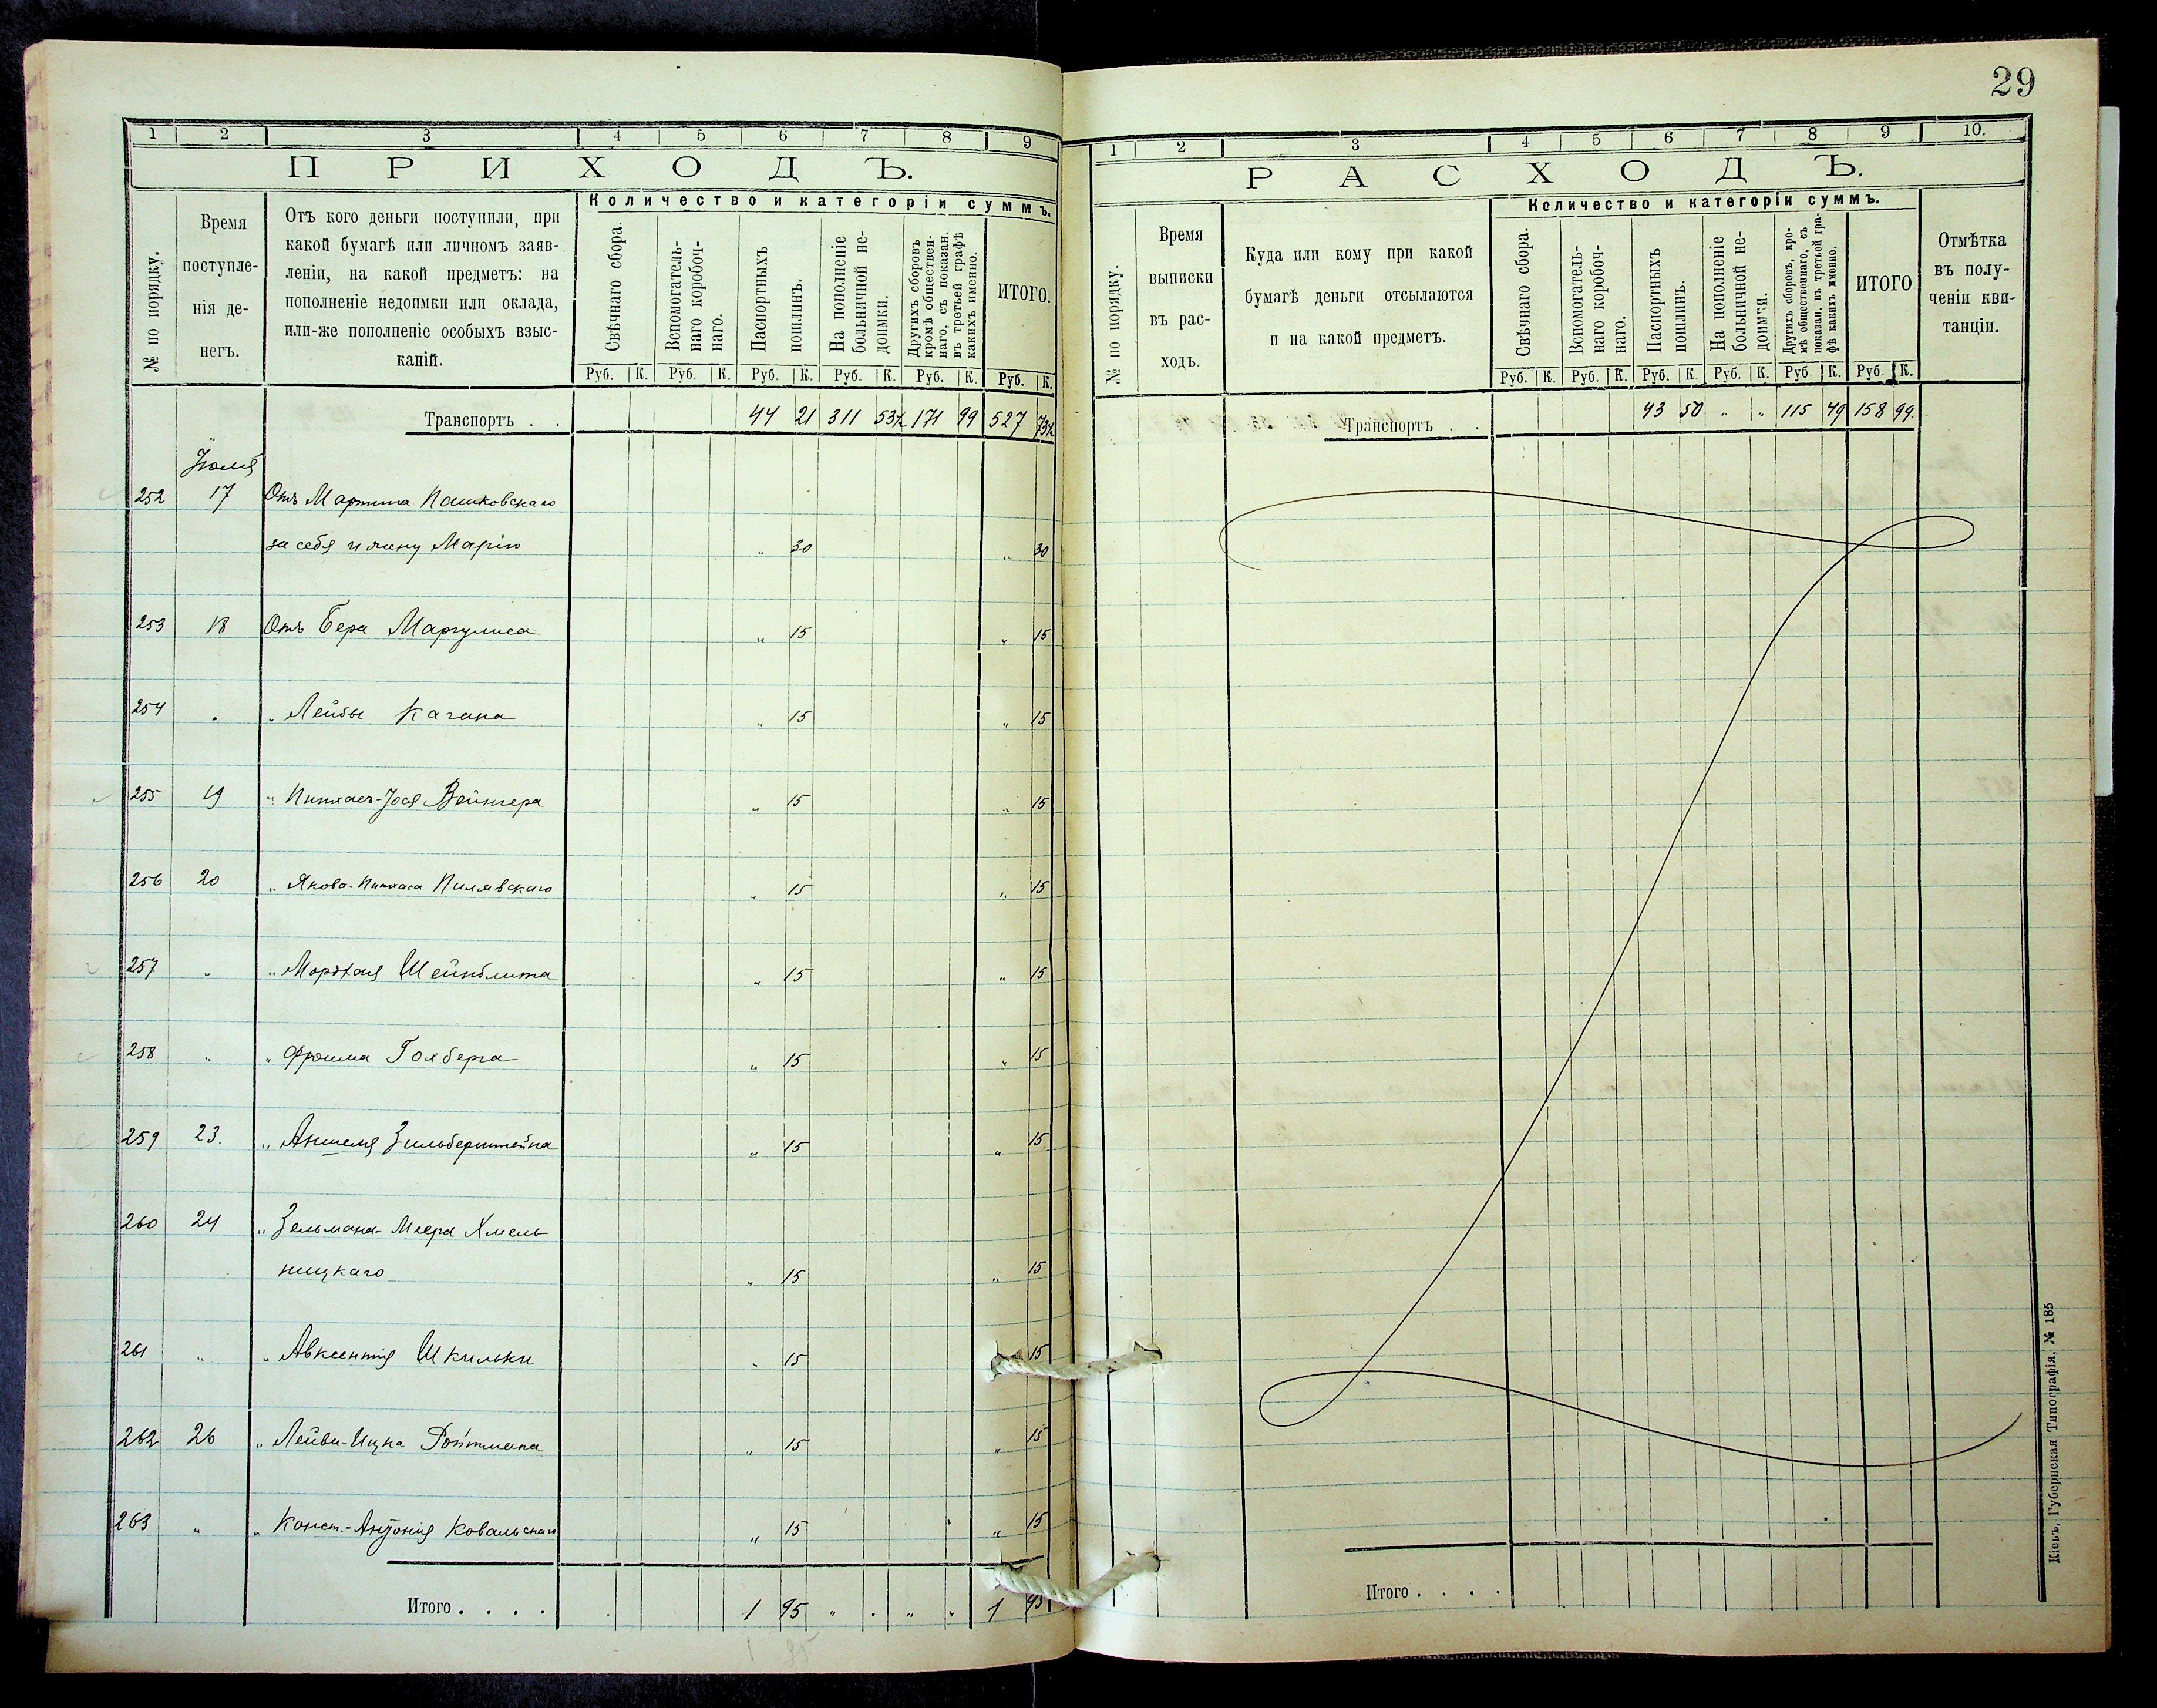 29
1 2 3 4 5 6 7 8 9
ПРИХОДЪ.
№ по порядку.
Время поступле-
нія де-
негъ.
Отъ кого деньги поступили, при
какой бумагѣ или личномъ заяв-
леніи, на какой предметъ: на
пополненіе недоимки или оклада,
или-же пополненіе особыхъ взыс-
каній.
Количество и категоріи суммъ.
Свѣчнаго сбора.
Вспомогатель-
наго коробоч-
наго.
Паспортныхъ
пошлинъ.
На пополненіе
больничной не-
доимки.
Другихъ сборовъ
кромѣ обществен-
наго, съ показан.
въ третьей графѣ
какихъ именно.
ИТОГО.
Руб. К. Руб. К. Руб. К. Руб. К. Руб. К. Руб. К.
Транспортъ . . 44 21 311 53½ 171 99 527 73½
Іюля
252 17 Отъ Мартина Пашковскаго
за себя и жену Марію " 30 " 30
253 18 Отъ Бера Маргулиса " 15 " 15
254 " " Лейбы Кагана " 15 " 15
255 19 " Пинхаса-Іося Вейнгера " 15 " 15
256 20 " Якова-Пинхаса Пилявскаго " 15 " 15
257 " " Мордхая Шейнблита " 15 " 15
258 " " Фроима Голберга " 15 " 15
259 23. " Аншеля Зильберштейна " 15 " 15
260 24 " Зельмана-Меера Хмель-
ницкаго " 15 " 15
261 " " Авксентія Шкильки " 15 15
262 26 " Лейви-Ицка Ройтмана " 15 " 15
263 " " Конст.-Антонія Ковальскаго " 15 " 15
Итого . . . . 1 95 " . " " 1 95
1 95
1 2 3 4 5 6 7 8 9 10.
РАСХОДЪ.
№ по порядку.
Время
выписки
въ рас-
ходъ.
Куда или кому при какой
бумагѣ деньги отсылаются
и на какой предметъ.
Количество и категоріи суммъ.
Свѣчнаго сбора.
Вспомогатель-
наго коробоч-
наго.
Паспортныхъ
пошлинъ.
На пополненіе
больничной не-
доимки.
Другихъ сборовъ, кро-
мѣ общественнаго, съ
показан. въ третьей гра-
фѣ какихъ именно.
ИТОГО
Отмѣтка
въ полу-
ченіи кви-
танціи.
Руб. К. Руб. К. Руб. К. Руб. К. Руб К. Руб. К.
Транспортъ . . 43 50 " " 115 49 158 99.
Итого . . . .
Кіевъ, Губернская Типографія, № 185